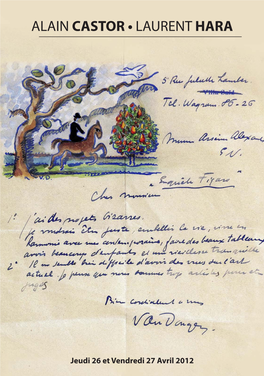 ALAIN CASTOR • LAURENT HARA
5 Rue Juliette Lamber
Tel. Wagram 86-26
Monsieur Arsène Alexandre
E.V.
"Enquête Figaro"
Cher Monsieur
1° J'ai des projets bizarres.
je voudrais être juste embellir la vie, vivre en
harmonie avec mes contemporains, faire des beaux tableaux
avoir beaucoup d'enfants et une vieillesse tranquille
2° Il me semble bien difficile d'avoir des vues sur l'art
actuel je pense que nous sommes trop
jugés
Bien cordialement à vous
Van Dongen
Jeudi 26 et Vendredi 27 Avril 2012